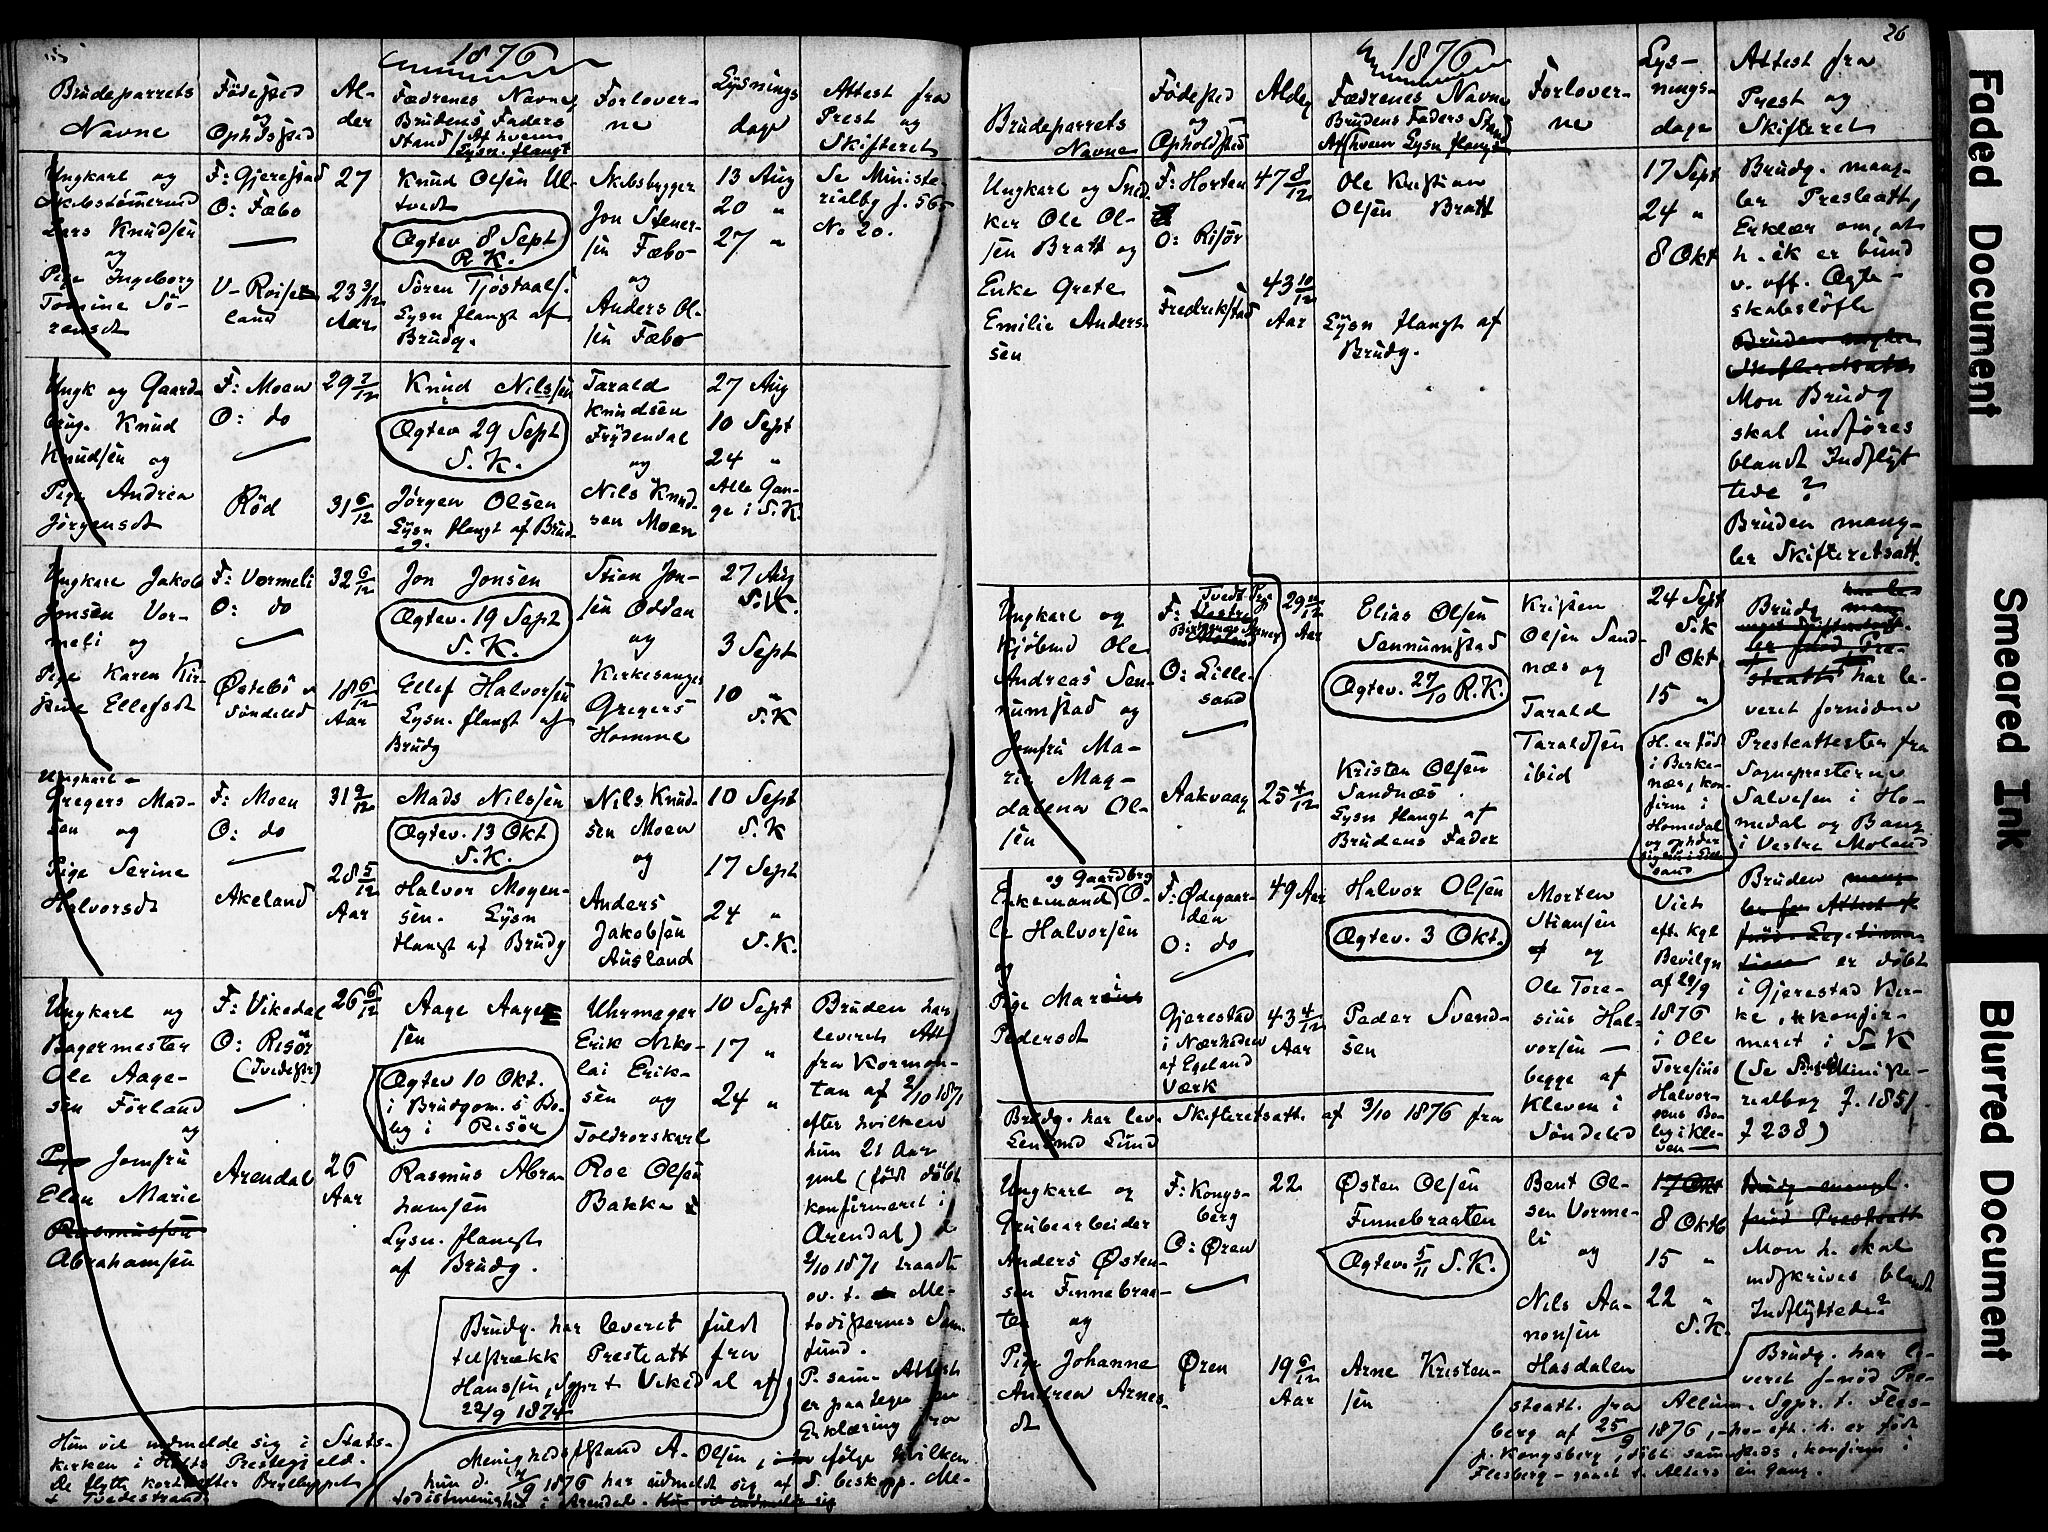 1876
Brudeparrets
Navne
Fødested
og
Opholdssted
Al-
der
Fædrenes Navne,
Brudens Faders
Stand/Af hvem
Lysn. flangt
Forlover-
ne
Lysnings
dage
Attest fra
Prest og
Skifteret
Ungkarl og
Skibstømermd
Lars Knudsen
og
Pige Ingeborg
Tomine Sö-
rensdt
F: Gjerestad
O: Fæbo
V-Roise
land
27
23 3/12
Aar
Knud Olsen Ul-
tvedt
Ægtev 8 Sept
R. K.
Sören Tjöstaals.
Lysn flangt af
Brudg.
Skibsbygger
Jon Stener-
sen Fæbo
og
Anders Ol-
sen Fæbo
13 Aug
20 "
27 "
Se Ministe-
rialbg f. 56
No 20.
Ungk og Gaard-
brug. Knud
Knudsen og
Pige Andrea
Jörgensdt
F: Moen
O: do
Röd
29 7/12
31 6/12
Knud Nilssen
Ægtev 29 Sept
S. K.
Jörgen Olsen
Lysn flangt af Brud-
g.
Tarald
Knudsen
Frydendal
og
Nils Knud-
sen Moen
27 Aug
10 Sept
24 "
Alle Gan-
ge i S. K.
Ungkarl Jakob
Jonsen Vor-
meli og
Pige Karen Kir-
stine Ellefsdt
F: Vormeli
O: do
Østebö v
Söndeled
32 6/12
18 6/12
Aar
Jon Jonsen
Ægtev. 19 Sept
S. K.
Ellef Halvorsen
Lysn. flangt af
Brudg
Stian Jon-
sen Odden
og
Kirkesanger
Gregers
Homme
27 Aug
S. K.
3 Sept
10 "
S. K
Ungkarl
Gregers Mad-
sen og
Pige Serine
Halvorsdt
F: Moen
O: do
Akeland
31 2/12
28 5/12
Aar
Mads Nilssen
Ægtev. 13 Okt
S. K.
Halvor Mogen-
sen. Lysn
flangt af Brudg
Nils Knud-
sen Moen
og
Anders
Jakobsen
Ausland
10 Sept
S. K
17 Sept
24 "
S. K.
Ungkarl og
Bagermester
Ole Aage-
sen Förland
og
Pige Jomfru
Elen Marie
Rasmussen
Abrahamsen
F: Vikedal
O: Risör
(Tvedestr)
Arendal
26 6/12
26
Aar
Aage Aage
sen
Ægtev 10 Okt.
i Brudgom. s Bo-
lig i Risör
Rasmus Abra
hamsen
Lysn. flangt
af Brudg.
Uhrmager
Erik Niko-
lai Erik-
sen og
Toldrorskarl
Roe Olsen
Bakke
10 Sept
17 "
24 "
Bruden har
leveret Att
fra Kormon-
tan af 2/10 1871
efter hvilken
hun 21 Aar
gml (född döbt
konfirmeret i
Arendal) d
2/10 1871 traadt
ov. t. Me-
todisternes Sam-
fund.
P. sam. Attest
er paategn en
Erklæring fra
Brudg. har leveret fuldt
tilstrækk Presteatt fra
Hanssen, Sgprt Vikedal af
22/9 1874
Menighedsforstand A. Olsen, ifølge hvilken
hun d. 4/9 1876 har udmeldt sig af d. beskpp. Me-
todistmenighed i Arendal. Hun vil indmelde sig
Hun vil indmelde sig i Stats-
kirken i Holts Prestegjeld.
De flytte kort efter Bryllyppet
t Tvedestrand.
26
1876
Brudeparrets
Navne
Födested
og
Opholdssted
Alder
Fædrenes Navne
Brudens Faders Stand
Af hvem Lysn flangt
Forlover-
ne
Lys-
nings-
dage
Attest fra
Prest og
Skifteret
Ungkarl og Sned
ker Ole Ol-
sen Bratt og
Enke Grete
Emilie Anders-
sen
F: Horten
O: Risör
Fredrikstad
47 8/12
43 10/12
Aar
Ole Kristian
Olsen Bratt
Lysn flangt af
Brudg.
17 Sept
24 "
8 Okt
Brudg. mang-
ler Presteatt,
Erklær om, at
h. ik er bund
v. off. Ægte-
skabslöfte
Bruden mgler
Skifteretsatt
Mon Brudg
skal indföres
blandt Indflyt
tede?
Bruden mang-
ler Skifteretsatt.
Ungkarl og
Kjöbmd Ole
Andreas Sen-
numstad og
Jomfru Ma-
rie Mag-
dalena Ol-
sen
F:
O: Lille-
sand
Aakvaag
29 11/12
Aar
25 4/12
Elias Olsen
Sennumstad
Ægtev. 27/10 R. K.
Kristen Olsen
Sandnæs
Lysn flangt af
Brudens Fader
Kristen
Olsen Sand-
næs og
Tarald
Taraldsen
ibid
24 Sept
S. K
8 Okt
15 "
H. er född
i Berke-
nær, kon-
firm i
Homedal
og opholder
sig nu i Lille
sand
Brudg
har le-
veret fornödne
Presteattester fra
Sognepresterne
Salvesen i Ho-
medal og Bang
i Vestre Moland
og Gaardbrg
Enkemand O-
le Halvorsen
og
Pige Marie
Pedersdt
F: Ødegaar-
den
O: do
Gjerestad
i Nærheden
af Egeland
Værk
49 Aar
43 4/12
Aar
Halvor Olsen
Ægtev. 3 Okt.
Peder Svend-
sen
Morten
Stiansen
og
Ole Tore-
sius Hal-
vorsen —
begge af
Kleven i
Söndeled
Viet
eft. kgl
Bevilgn
af 29/9
1876
i Ole
Toresius
Halvor-
sens Bo-
lig i Kle-
ven
Bruden
er döbt
i Gjerestad Kir-
ke, konfir-
meret i S. K
(Se Ministe-
rialbog f. 1851
f 238)
Brudg. har lev. Skifteretsatt. af 3/10 1876 fra
Lensmd Lund
Ungkarl og
Grubearbeider
Anders Østen-
sen Finnebraa-
ten og
Pige Johanne
Andrea Arnes-
dt
F: Kongs-
berg
O: Øren
Øren
22
19 6/12
Aar
Østen Olsen
Finnebraaten
Ægtev. 5/11 S. K.
Arne Kristen-
sen
Bent Ol-
sen Vorme-
li og
Nils Aa-
nonsen
Hasdalen
17 Okt
8 Oktb
15 "
22 "
S. K.
Brudg. mangl.
fnød Presteatt
Mon h. skal
indskrives blandt
Indflyttede?
Brudg. har le-
veret f-nöd Pre-
steatt. fra Allum. Sgpr. t. Fles-
berg af 25/9 1876, hvoreft. h. er född
p. Kongsberg, döbt sammesteds, konfirm i
Flesberg - gaaet t. Alters en Gang.
Faded Document
Smeared Ink
Blurred Document